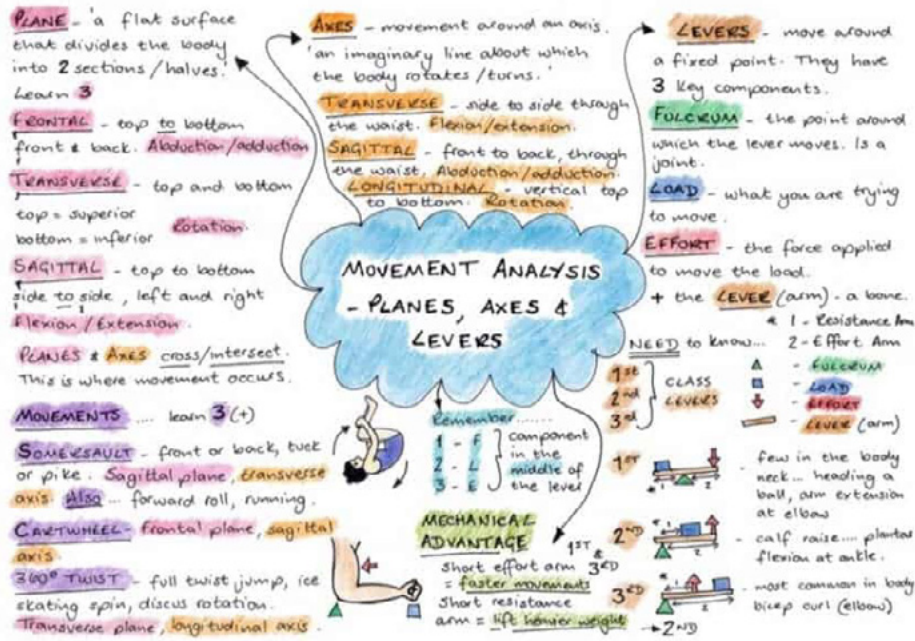 PLANE - 'a flat surface
that divides the body
into 2 sections/halves.'
Learn 3
FRONTAL - top to bottom
front & back. Abduction/adduction
TRANSVERSE - top and bottom
top = superior
bottom = inferior Rotation.
SAGITTAL - top to bottom
side to side, left and right
Flexion/Extension.
PLANES & AXES cross/intersect.
This is where movement occurs.
MOVEMENTS .... learn 3 (+)
SOMERSAULT - front or back, tuck
or pike. Sagittal plane, transverse
axis. Also ... forward roll, running.
CARTWHEEL - Frontal plane, sagittal
axis.
360° TWIST - full twist jump, ice
skating spin, discus rotation.
Transverse plane, longitudinal axis.
AXES - movement around an axis.
'an imaginary line about which
the body rotates/turns.'
TRANSVERSE - side to side through
the waist. Flexion/extension.
SAGITTAL - front to back, through
the waist, Abduction/adduction.
LONGITUDINAL - vertical top
to bottom. Rotation.
MOVEMENT ANALYSIS
- PLANES, AXES &
LEVERS
Remember......
1 - F
2 - L
3 - E
component
in the
middle of
the lever
MECHANICAL
ADVANTAGE
short effort arm
= faster movements
1ST &
3RD
short resistance
arm = lift heavier weight
→ 2ND
LEVERS - move around
a fixed point. They have
3 key components.
FULCRUM - the point around
which the lever moves. Is a
joint.
LOAD - what you are trying
to move.
EFFORT - the force applied
to move the load.
+ the LEVER (arm) - a bone.
* 1 - Resistance Arm
2 - Effort Arm
NEED to know...
1st
2nd
3rd
CLASS
LEVERS
- FULCRUM
- LOAD
- EFFORT
- LEVER (arm)
1ST
* 1 2
- few in the body
neck... heading a
ball, arm extension
at elbow
2ND
2
- calf raise.... plantar
flexion at ankle.
3RD
2
- most common in body
bicep curl (elbow)